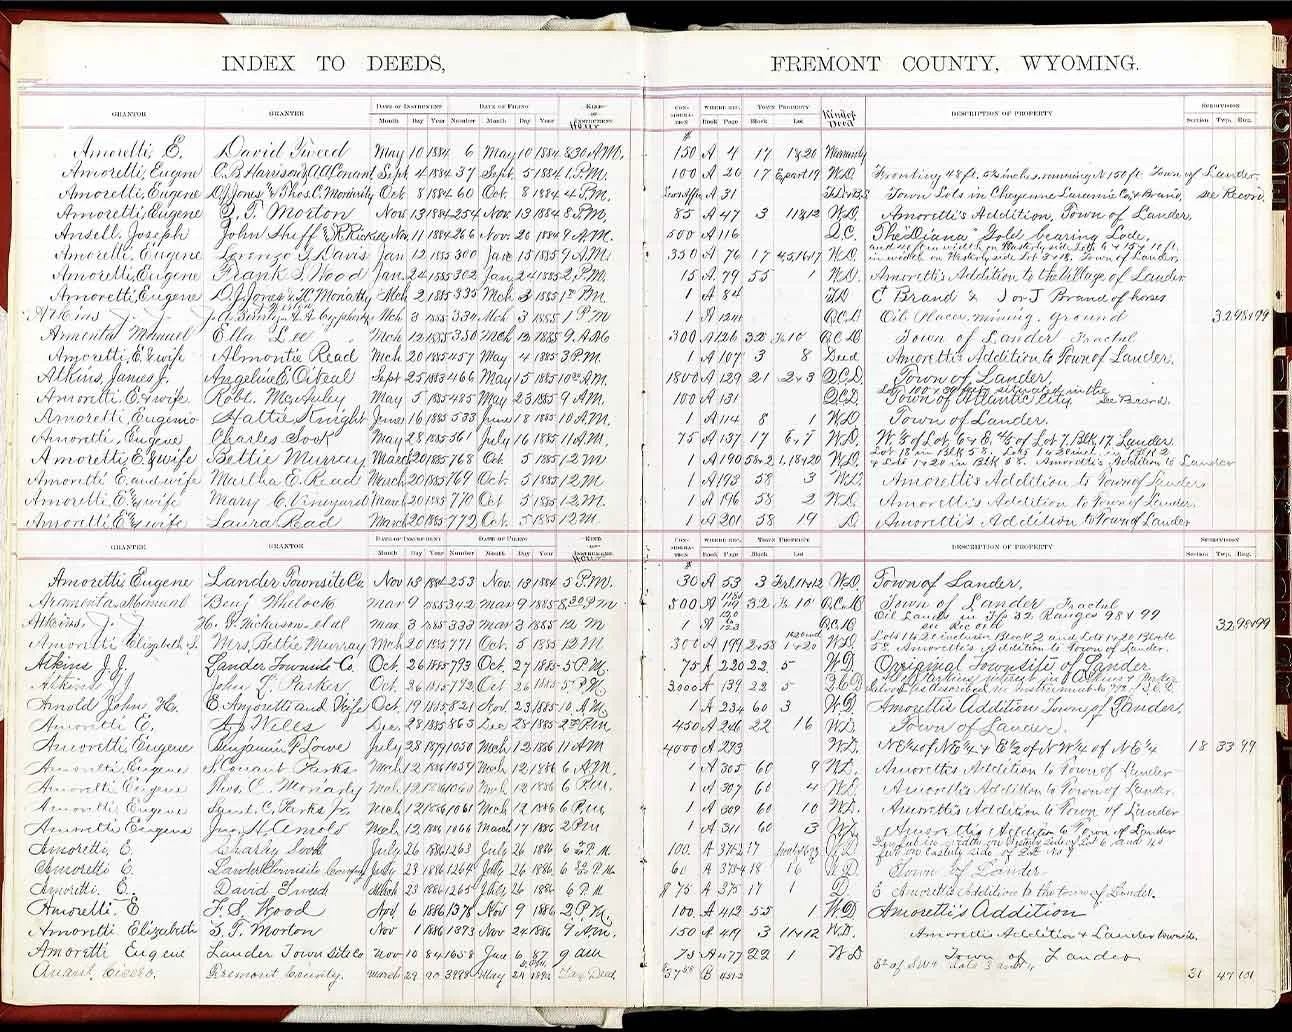 INDEX TO DEEDS,
FREMONT COUNTY, WYOMING.
GRANTOR GRANTEE DATE OF INSTRUMENT Month Day Year Number DATE OF FILING Month Day Year KIND OF INSTRUMENT Hour CONSIDERATION WHERE REC. Book Page TOWN PROPERTY Block Lot Kind of Deed DESCRIPTION OF PROPERTY SUBDIVISION Section Twp. Rng.
Amoretti, E. David Tweed May 10 1884 6 May 10 1884 8 30 A.M. $ 150 A 4 17 19 20 Warranty
Amoretti, Eugene C.B. Harrison & A.A. Conant Sept. 4 1884 37 Sept. 5 1884 1 P.M. 100 A 20 17 W.D. Fronting 48 ft. running N 150 ft. Town of Lander.
Amoretti, Eugene D.J. Jones & Thos. C. Moriarity Oct 8 1884 60 Oct. 8 1884 4 P.M. A 31 Town Lots in Cheyenne Laramie Co. & Brand, see Record.
Amoretti, Eugene S. T. Morton Nov. 13 1884 254 Nov. 13 1884 8 P.M. 85 A 47 3 11&12 W.D. Amoretti's Addition, Town of Lander.
Ansell, Joseph John Sheff & Nov. 11 1884 266 Nov. 20 1884 9 A.M. 500 A 116 Q.C. The "Diana" Gold bearing Lode.
Amoretti, Eugene Lorenzo S. Davis Jan 12 1885 300 Jan 15 1885 9 A.M. 350 A 76 17 4,5,16,17 W.D. in width on Westerly side Lot Town of Lander,
Amoretti, Eugene Frank S. Wood Jan. 24 1885 302 Jan. 24 1885 2 P.M. 15 A 79 55 1 W.D. Amoretti's Addition to the Village of Lander
Amoretti, Eugene D.J. Jones & T.C. Moriarity Mch 2 1885 335 Mch 3 1885 1 P.M. 1 A 84 C Brand & J or J Brand of horses
Atkins J. J. Mch 3 1885 334 Mch 3 1885 1 P.M. 1 A 124 Q.C.D. Oil Placer, mining, ground 32 98&99
Armenta Manuel Ella Lee Mch 12 1885 350 Mch 12 1885 9 A.M. 300 A 126 32 10 Q.C.D. Town of Lander Fractnl
Amoretti, E. & wife Almontie Read Mch 20 1885 457 May 4 1885 3 P.M. 1 A 107 3 8 Deed Amoretti's Addition to Town of Lander.
Atkins, James J. Angeline E. O'Neal Sept 25 1883 466 May 15 1885 10 A.M. 1800 A 129 21 2&3 Q.C.D. Town of Lander
Amoretti. E. & wife Robt. McAuley May 5 1885 485 May 23 1885 9 A.M. 100 A 131 Q.C.D. Lot 100 x situated in the Town of Atlantic City See Record.
Amoretti, Eugenio Hattie Knight June 16 1885 533 June 18 1885 10 A.M. 1 A 114 8 1 W.D. Town of Lander.
Amoretti, Eugene Charles Sook May 28 1885 561 July 16 1885 11 A.M. 75 A 137 17 6&7 W.D. W 1/2 of Lot, 6 & E. 1/2 of Lot 7. Blk 17. Lander.
Amoretti, E. & wife Bettie Murray March 20 1885 768 Oct. 5 1885 12 M 1 A 190 58&2 1,18&20 W.D. Lot 18 in Blk 58. Lots 1 & 2 incl. in Blk 2 & Lots 1 & 20 in Blk 58. Amoretti's Addition to Lander
Amoretti E. and wife Martha E. Read March 20 1885 769 Oct. 5 1885 12 M 1 A 193 58 3 W.D. Amoretti's Addition to Town of Lander
Amoretti E. & wife Mary C. Vineyard March 20 1885 770 Oct 5 1885 12 M. 1 A 196 58 2 W.D. Amoretti's Addition to Town of Lander
Amoretti E. & wife Laura Read March 20 1885 772 Oct. 5 1885 12 M 1 A 201 58 19 D Amoretti's Addition to Town of Lander
GRANTEE GRANTOR DATE OF INSTRUMENT Month Day Year Number DATE OF FILING Month Day Year KIND OF INSTRUMENT Hour CONSIDERATION WHERE REC. Book Page TOWN PROPERTY Block Lot DESCRIPTION OF PROPERTY SUBDIVISION Section Twp. Rng.
Amoretti, Eugene Lander Townsite Co. Nov 13 1884 253 Nov. 13 1884 5 P.M. 30 A 53 3 W.D Town of Lander.
Armenta, Manual Benj Whelock Mar 9 1885 342 Mar 9 1885 8 30 P.M 500 A 119 32 10 Q.C.D Town of Lander Fractnl
Atkins, J. J. H. G. Nickerson et al Mar 3 1885 333 Mar 3 1885 12 M 1 A 123 Q.C.D Oil Lands in T/s 32 Ranges 98 & 99 see Record 32 98&99
Amoretti Elizabeth S. Mrs. Bettie Murray Mch 20 1885 771 Oct. 5 1885 12 M 300 A 199 2&58 1&20 W.D. Lots 1 & 20 inclusive Block 2 and Lots 1 & 20 Block 58, Amoretti's Addition to Town of Lander.
Atkins J.J. Lander Townsite Co. Oct. 26 1885 793 Oct. 27 1885 5 P.M. 75 A 220 22 5 W.D. Original Townsite of Lander
Atkins J.J. John L. Parker Oct. 26 1885 792 Oct 26 1885 5 P.M. 3000 A 139 22 5 Q.C.D
Arnold John H. E. Amoretti and Wife Oct. 19 1885 821 Nov. 23 1885 10 A.M. 1 A 234 60 3 W.D Amoretti's Addition Town of Lander.
Amoretti E. Wells Dec. 28 1885 865 Dec 28 1885 2 P.M 450 A 246 22 16 W.D. Town of Lander.
Amoretti Eugene Benjamin F. Lowe July 28 1879 1050 Mch 12 1886 11 A.M 4000 A 293 W.D. N E 1/4 of N E 1/4 & E 1/2 of N W 1/4 of N E 1/4 18 33 99
Amoretti, Eugene S. Conant Parks Mch 12 1886 1059 Mch 12 1886 6 P.M. 1 A 305 60 9 W.D. Amoretti's Addition to Town of Lander
Amoretti Eugene Thos. C. Moriarty Mch 12 1886 1060 Mch 12 1886 6 P.M. 1 A 307 60 4 W.D. Amoretti's Addition to Town of Lander.
Amoretti Eugene Saml. C. Parks Jr. Mch 12 1886 1061 Mch 12 1886 6 P.M 1 A 309 60 10 W.D. Amoretti's Addition to Town of Lander
Amoretti Eugene Jno. H. Arnold Mch 12 1886 1066 March 17 1886 2 P.M 1 A 311 60 3 W.D. Amoretti's Addition to Town of Lander
Amoretti, E. Charley Sook July 26 1886 1263 July 26 1886 6 P.M 100. A 372 17 W.D. feet on Easterly side of Lot No 7
Amoretti E. Lander Townsite Company July 23 1886 1264 July 26 1886 6 P.M. 60 A 374 18 16 W.D. Town of Lander.
Amoretti, E. David Tweed March 23 1886 1265 July 26 1886 6 P.M 75 A 375 17 1 D. E Amoretti's Addition to the town of Lander.
Amoretti. E F. S. Wood Nov. 6 1886 1378 Nov 9 1886 2 P.M. 100. A 412 55 1 W.D Amoretti's Addition
Amoretti Elizabeth S. T. Morton Nov 1 1886 1393 Nov 24 1886 9 A.M. 150 A 419 3 11&12 W.D. Amoretti's Addition & Lander townsite.
Amoretti Eugene Lander Town Site Co Nov 10 84 1658 Jan 6 87 9 AM 75 A 477 22 1 W D Town of Lander
Fremont County. March 29 May Tax Deed B E 1/2 of SW 1/4 Lots 3 and 4 31